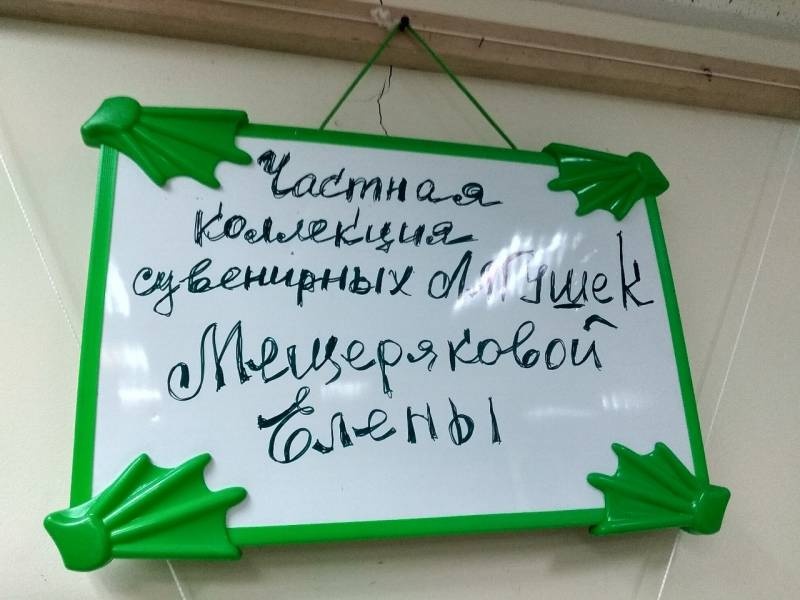 Частная
коллекция
сувенирных Лягушек
Мещеряковой
Елены